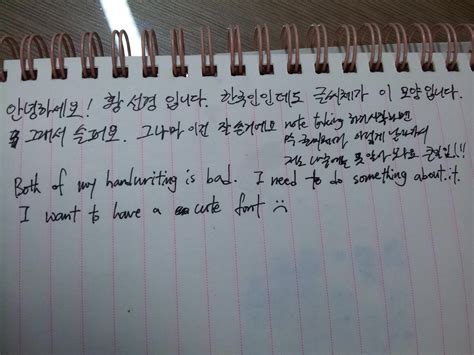 안녕하세요! 황선경 입니다. 한국인인데도 글씨체가 이 모양입니다.
그래서 슬퍼요. 그나마 이건 잘 쓴거에요 note taking 하기 시작하면
글씨체가 이렇게 날라가서
저도 나중에는 못 알아 봐요 큰일!!!
Both of my handwriting is bad. I need to do something about it.
I want to have a cute font :(